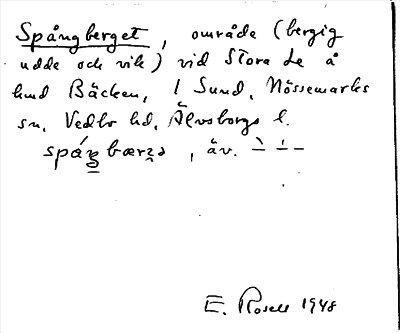 Spångberget, område (bergig
udde och vik) vid Stora Le å
hmd Bäcken, 1 Sund, Nössemarks
sn, Vedbo hd, Älvsborgs l.
, äv.
E. Rosell 1948